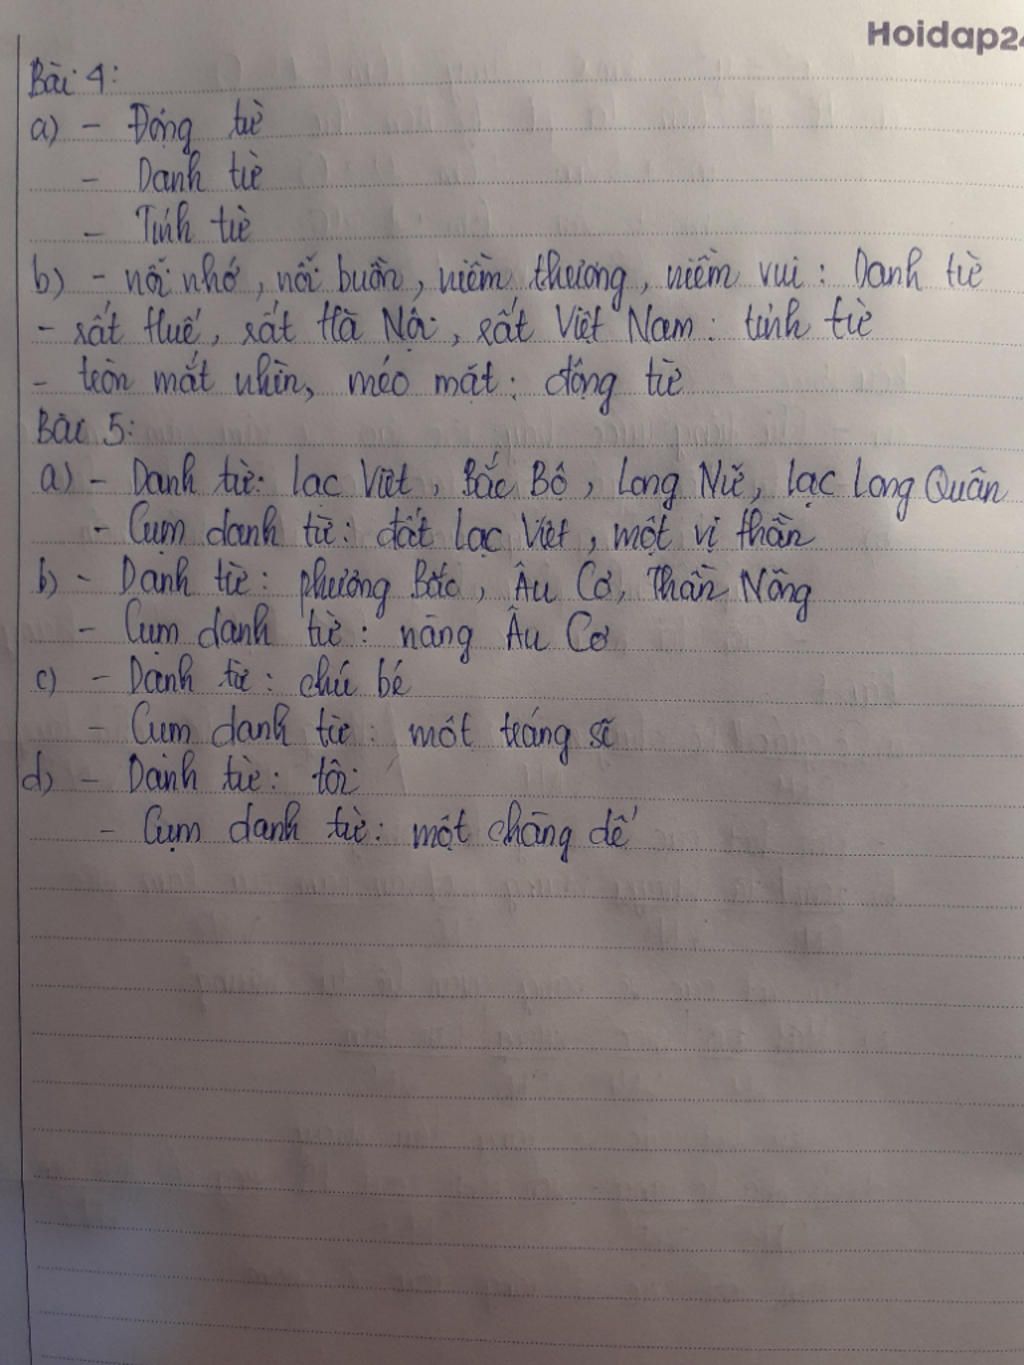 Hoidap24
Bài 4:
a) - Động từ
- Danh từ
- Tính từ
b) - nỗi nhớ, nỗi buồn, niềm thương, niềm vui: Danh từ
- rất Huế, rất Hà Nội, rất Việt Nam: tính từ
- tròn mắt nhìn, méo mặt: động từ
Bài 5:
a) - Danh từ: lạc Việt, Bắc Bộ, Long Nữ, lạc Long Quân
- Cụm danh từ: đất Lạc Việt, một vị thần
b) - Danh từ: phương Bắc, Âu Cơ, Thần Nông
- Cụm danh từ: nàng Âu Cơ
c) - Danh từ: chú bé
- Cụm danh từ: một tráng sĩ
d) - Danh từ: tôi
- Cụm danh từ: một chàng dế